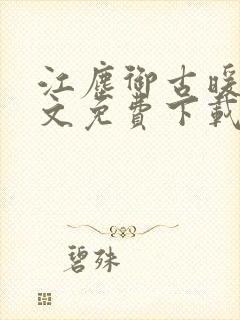 江塵御古暖
文免費下載
碧殊